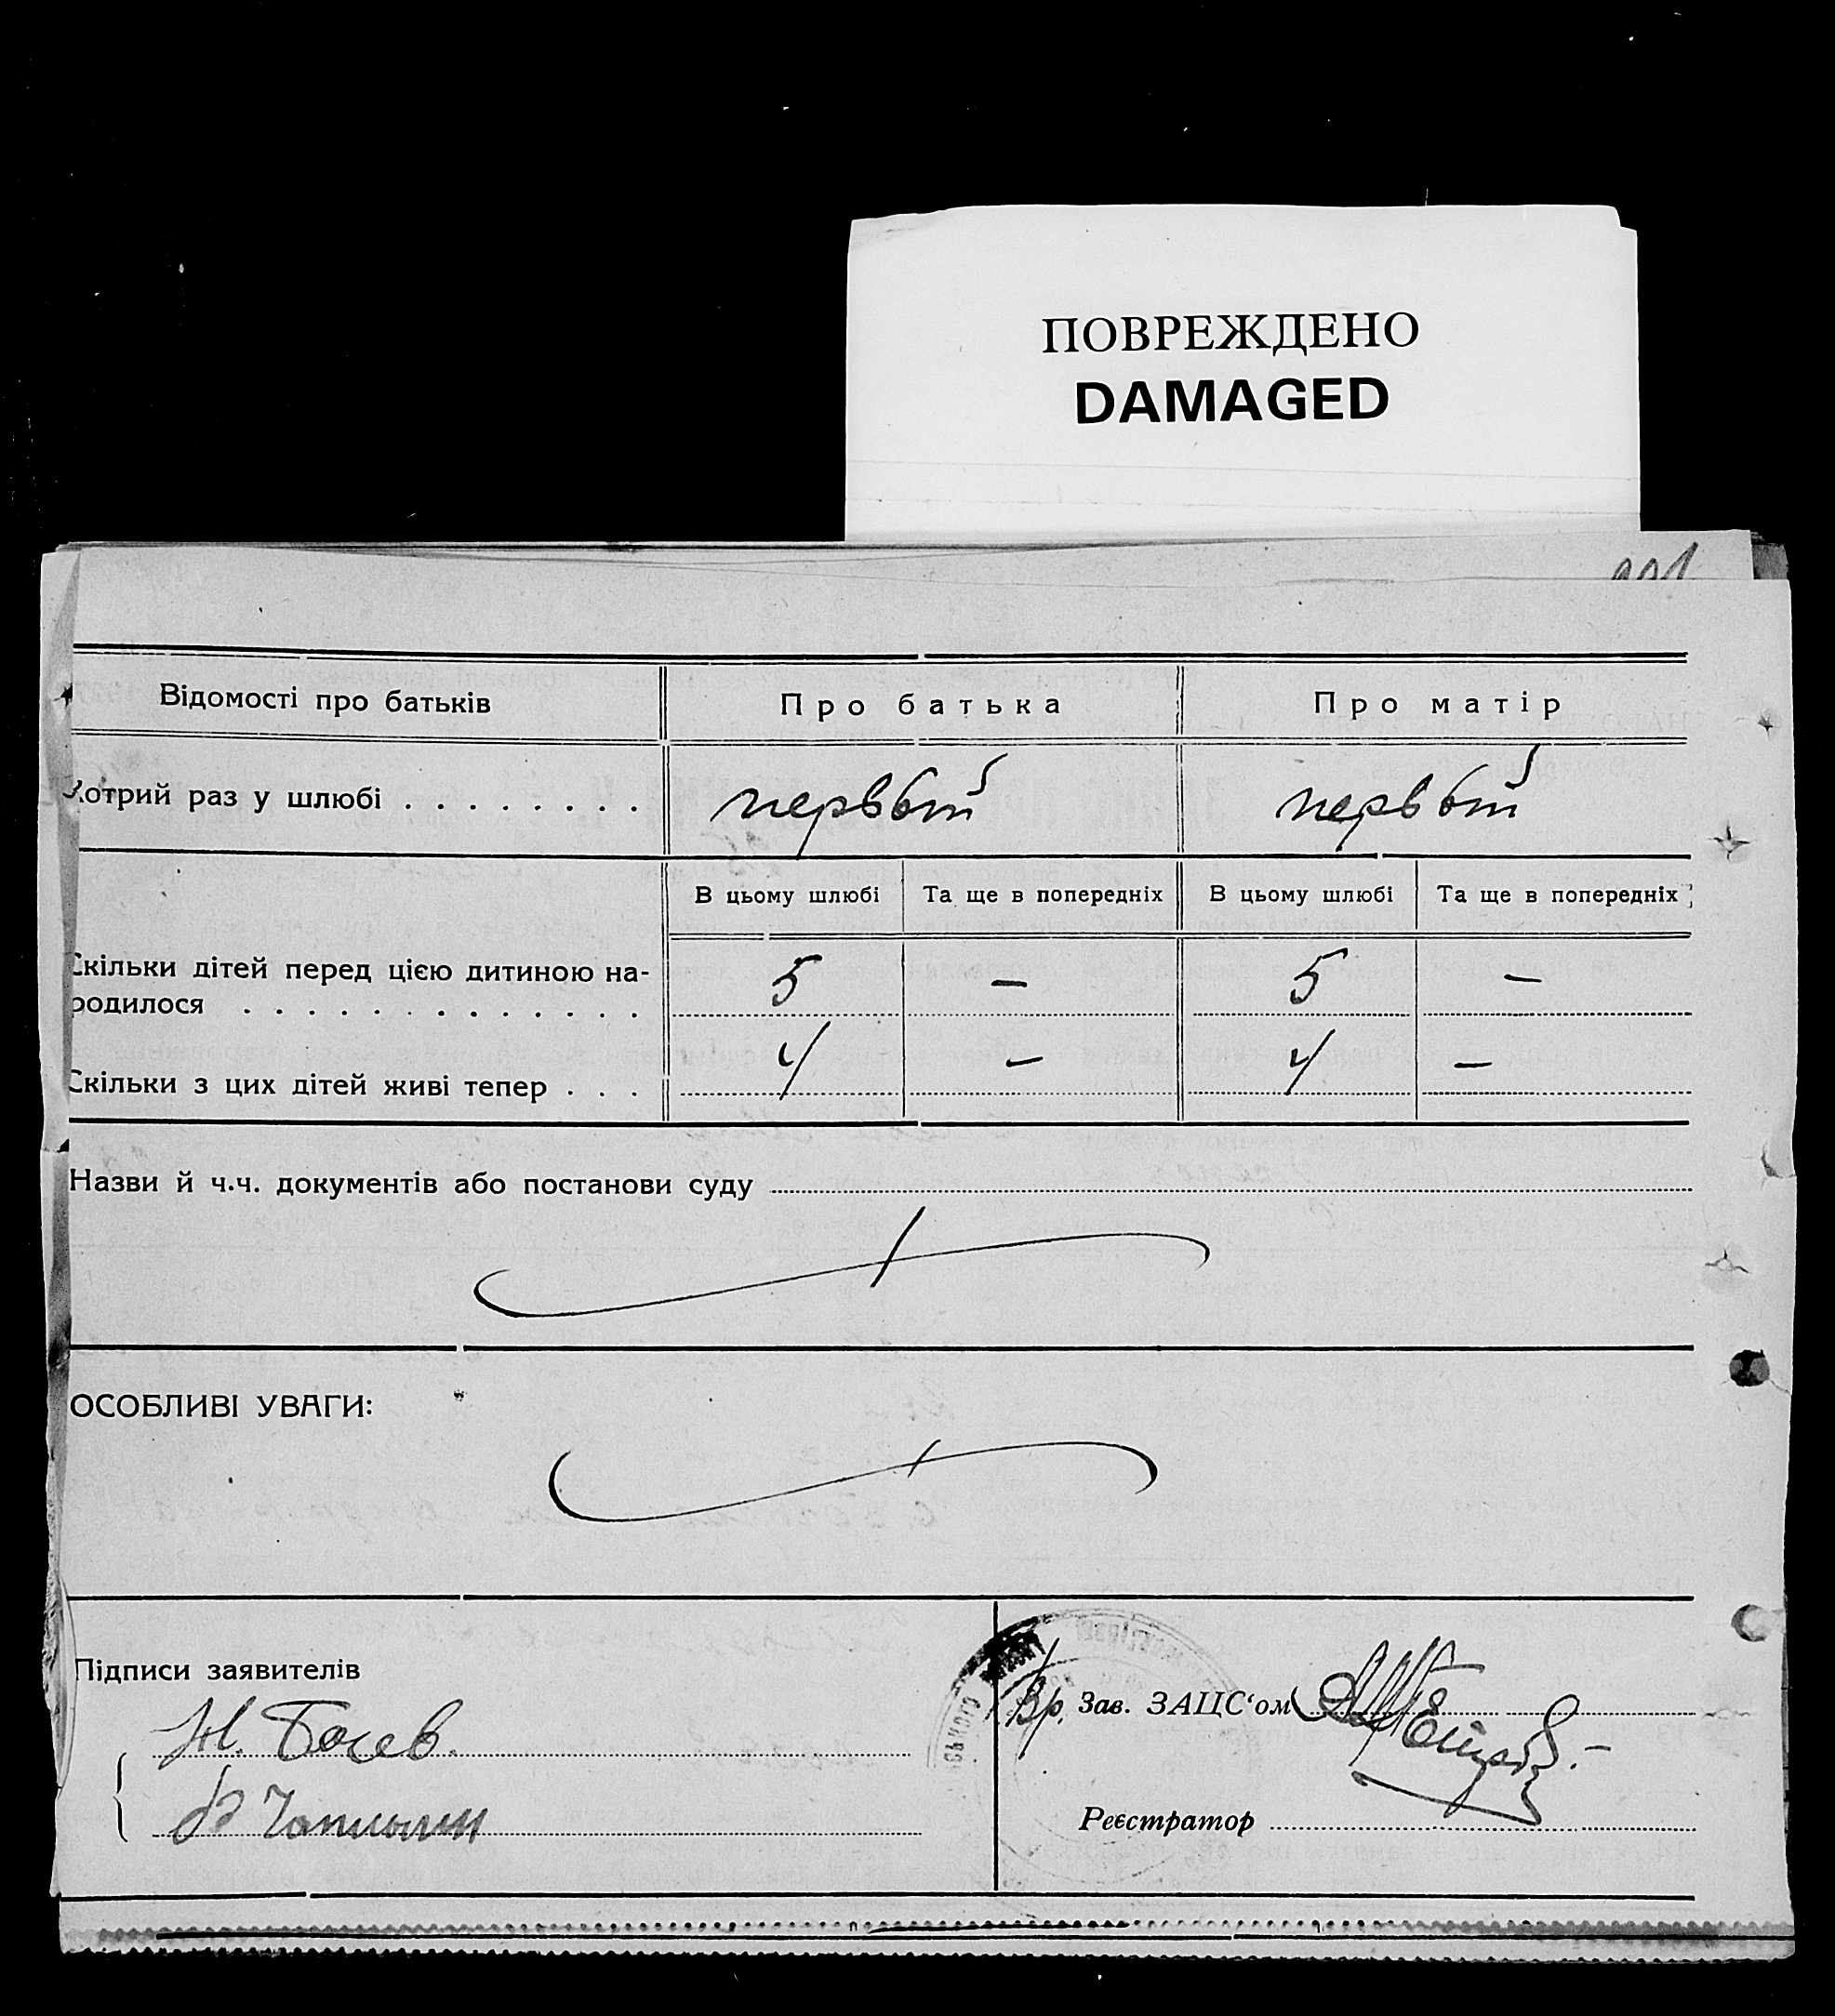 ПОВРЕЖДЕНО
DAMAGED
Відомості про батьків
Про батька
Про матір
Котрий раз у шлюбі
первый
первый
В цьому шлюбі
Та ще в попередніх
В цьому шлюбі
Та ще в попередніх
Скільки дітей перед цією дитиною на-
родилося
5 — 5 —
Скільки з цих дітей живі тепер
4 — 4 —
Назви й ч.ч. документів або постанови суду
ОСОБЛИВІ УВАГИ:
Підписи заявителів
Вр. Зав. ЗАЦС‘ом
Реєстратор